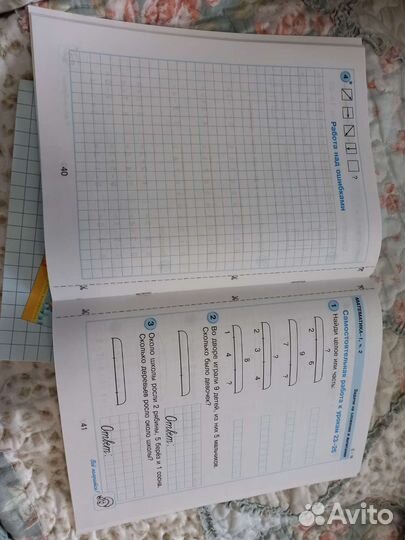 4* ?
Работа над ошибками
40
МАТЕМАТИКА–1, ч. 2
Самостоятельная работа к урокам 23–25
1 Найди целое или часть:
2
?
9
7 ?
?
2 3 4
1 4 ?
2 Во дворе играли 9 детей, из них 5 мальчиков.
Сколько было девочек?
Ответ:
3 Около школы росли 2 рябины, 5 берёз и 1 сосна.
Сколько деревьев росло около школы?
Ответ:
41
Avito